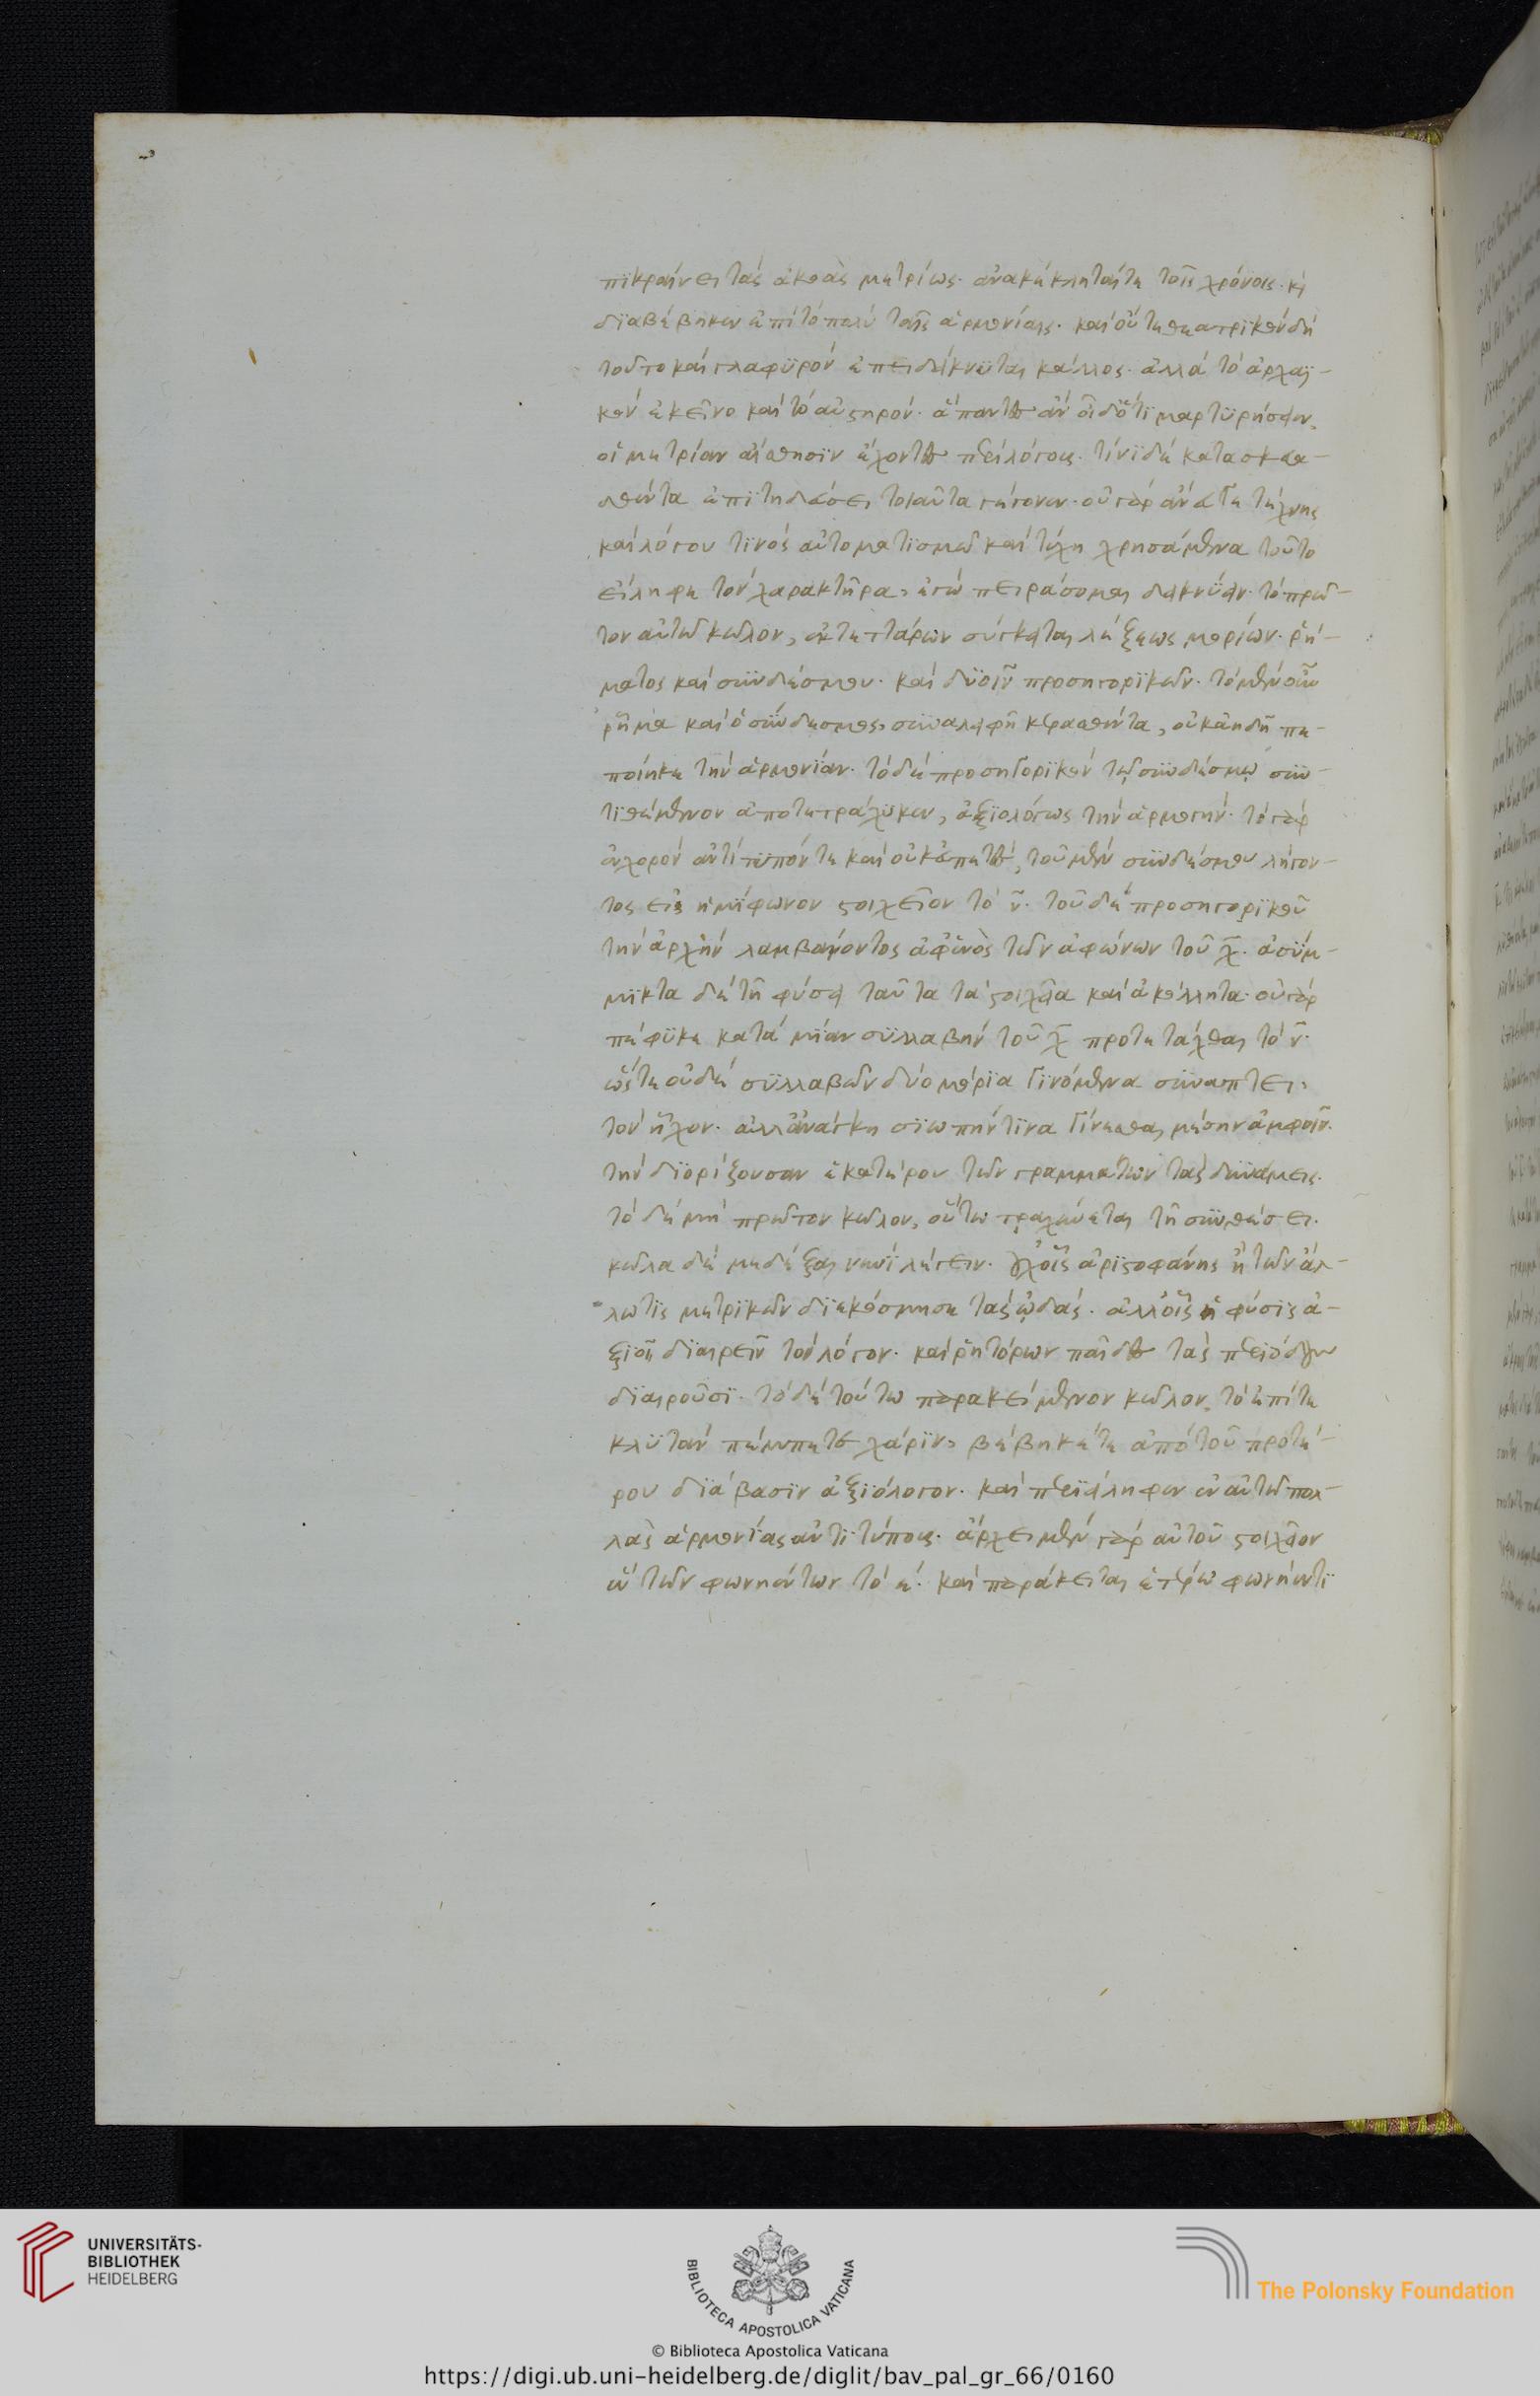 πϊκραίνει τὰς ἀκοὰς μετρίως· ἀνακέκληταί τε τοῖς χρόνοις· κὶ
διαβέβηκεν ἐπὶ τὸ πολὺ ταῖς ἁρμονίαις· καὶ οὔτε θεατρϊκὸν δὴ
τοῦτο καὶ γλαφϋρὸν ἐπειδείκνϋται κάλλος· ἀλλὰ τὸ ἀρχαϊ-
κὸν ἐκεῖνο καὶ τὸ αὐστηρόν· ἅπαντες ἂν οἶδ' ὅτϊ μαρτϋρήσειαν,
οἱ μετρίαν αἴσθησϊν ἔχοντες περὶ λόγους· τίνϊ δὲ κατασκευα-
σθέντα ἐπϊτηδεύσει τοιαῦτα γέγονεν· οὐ γὰρ ἄνευ γε τέχνης
καὶ λόγου τϊνὸς αὐτοματϊσμῶ καὶ τύχη χρησάμενα τοῦτο
εἴληφε τὸν χαρακτῆρα, ἐγὼ πειράσομαι δεικνύειν· τὸ πρῶ-
τον αὐτῶ κῶλον, ἐκ τεττάρων σύγκειται λέξεως μορίων· ῥή-
ματος καὶ συνδέσμου· καὶ δϋοῖν προσηγορϊκῶν· τὸ μὲν οὖν
ῥῆμα καὶ ὁ σύνδεσμος, συναλειφῆ κερασθέντα, οὐκ ἀηδῆ πε-
ποίηκε τὴν ἁρμονίαν· τὸ δὲ προσηγορϊκὸν τῷ συνδέσμῳ συν-
τϊθέμενον ἀποτετράχϋκεν, ἀξϊολόγως τὴν ἁρμογήν· τὸ γὰρ
ἐν χορὸν ἀντίτϋπόν τε καὶ οὐκ εὐπετές, τοῦ μὲν συνδέσμου λήγον-
τος εἰς ἡμίφωνον στοιχεῖον τὸ ν̄· τοῦ δὲ προσηγορϊκοῦ
τὴν ἀρχὴν λαμβάνοντος ἀφ' ἑνὸς τῶν ἀφώνων τοῦ χ̄· ἀσύμ-
μϊκτα δὲ τῆ φύσει ταῦτα τὰ στοιχεῖα καὶ ἀκόλλητα· οὐ γὰρ
πέφϋκε κατὰ μίαν σϋλλαβὴν τοῦ χ̄ προτετάχθαι τὸ ν̄·
ὥστε οὐδὲ σϋλλαβῶν δύο μόρϊα γϊνόμενα συνάπτει,
τὸν ἦχον· ἀλλ' ἀνάγκη σϊωπήν τϊνα γίνεσθαι μέσην ἀμφοῖν·
τὴν δϊορίζουσαν ἑκατέρου τῶν γραμμάτων τὰς δυνάμεις·
τὸ δὲ μὴ πρῶτον κῶλον, οὕτω τραχύνεται τῆ συνθέσει·
κῶλα δὲ με δέξαι νυνὶ λέγειν· οὐχ' οἷς ἀρϊστοφάνης ἢ τῶν ἄλ-
λων τϊς μετρϊκῶν δϊεκόσμησε τὰς ᾠδάς· ἀλλ' οἷς ἡ φύσϊς ἀ-
ξϊοῖ δϊαιρεῖν τὸν λόγον· καὶ ῥητόρων παῖδες τὰς περϊόδους
δϊαιροῦσϊ· τὸ δὲ τούτω παρακείμενον κῶλον, τὸ ἐπί τε
κλϋτὰν πέμπετε χάρϊν, βέβηκέ τε ἀπὸ τοῦ προτέ-
ρου δϊάβασϊν ἀξϊόλογον· καὶ περϊείληφεν ἐν αὐτῶ πολ-
λὰς ἁρμονίας ἀντϊτύπους· ἄρχει μὲν γὰρ αὐτοῦ στοιχεῖον
ἓν τῶν φωνηέντων τὸ ε· καὶ παράκειται ἑτέρω φωνήεντϊ
UNIVERSITÄTS-
BIBLIOTHEK
HEIDELBERG
BIBLIOTECA APOSTOLICA VATICANA
The Polonsky Foundation
© Biblioteca Apostolica Vaticana
https://digi.ub.uni-heidelberg.de/diglit/bav_pal_gr_66/0160